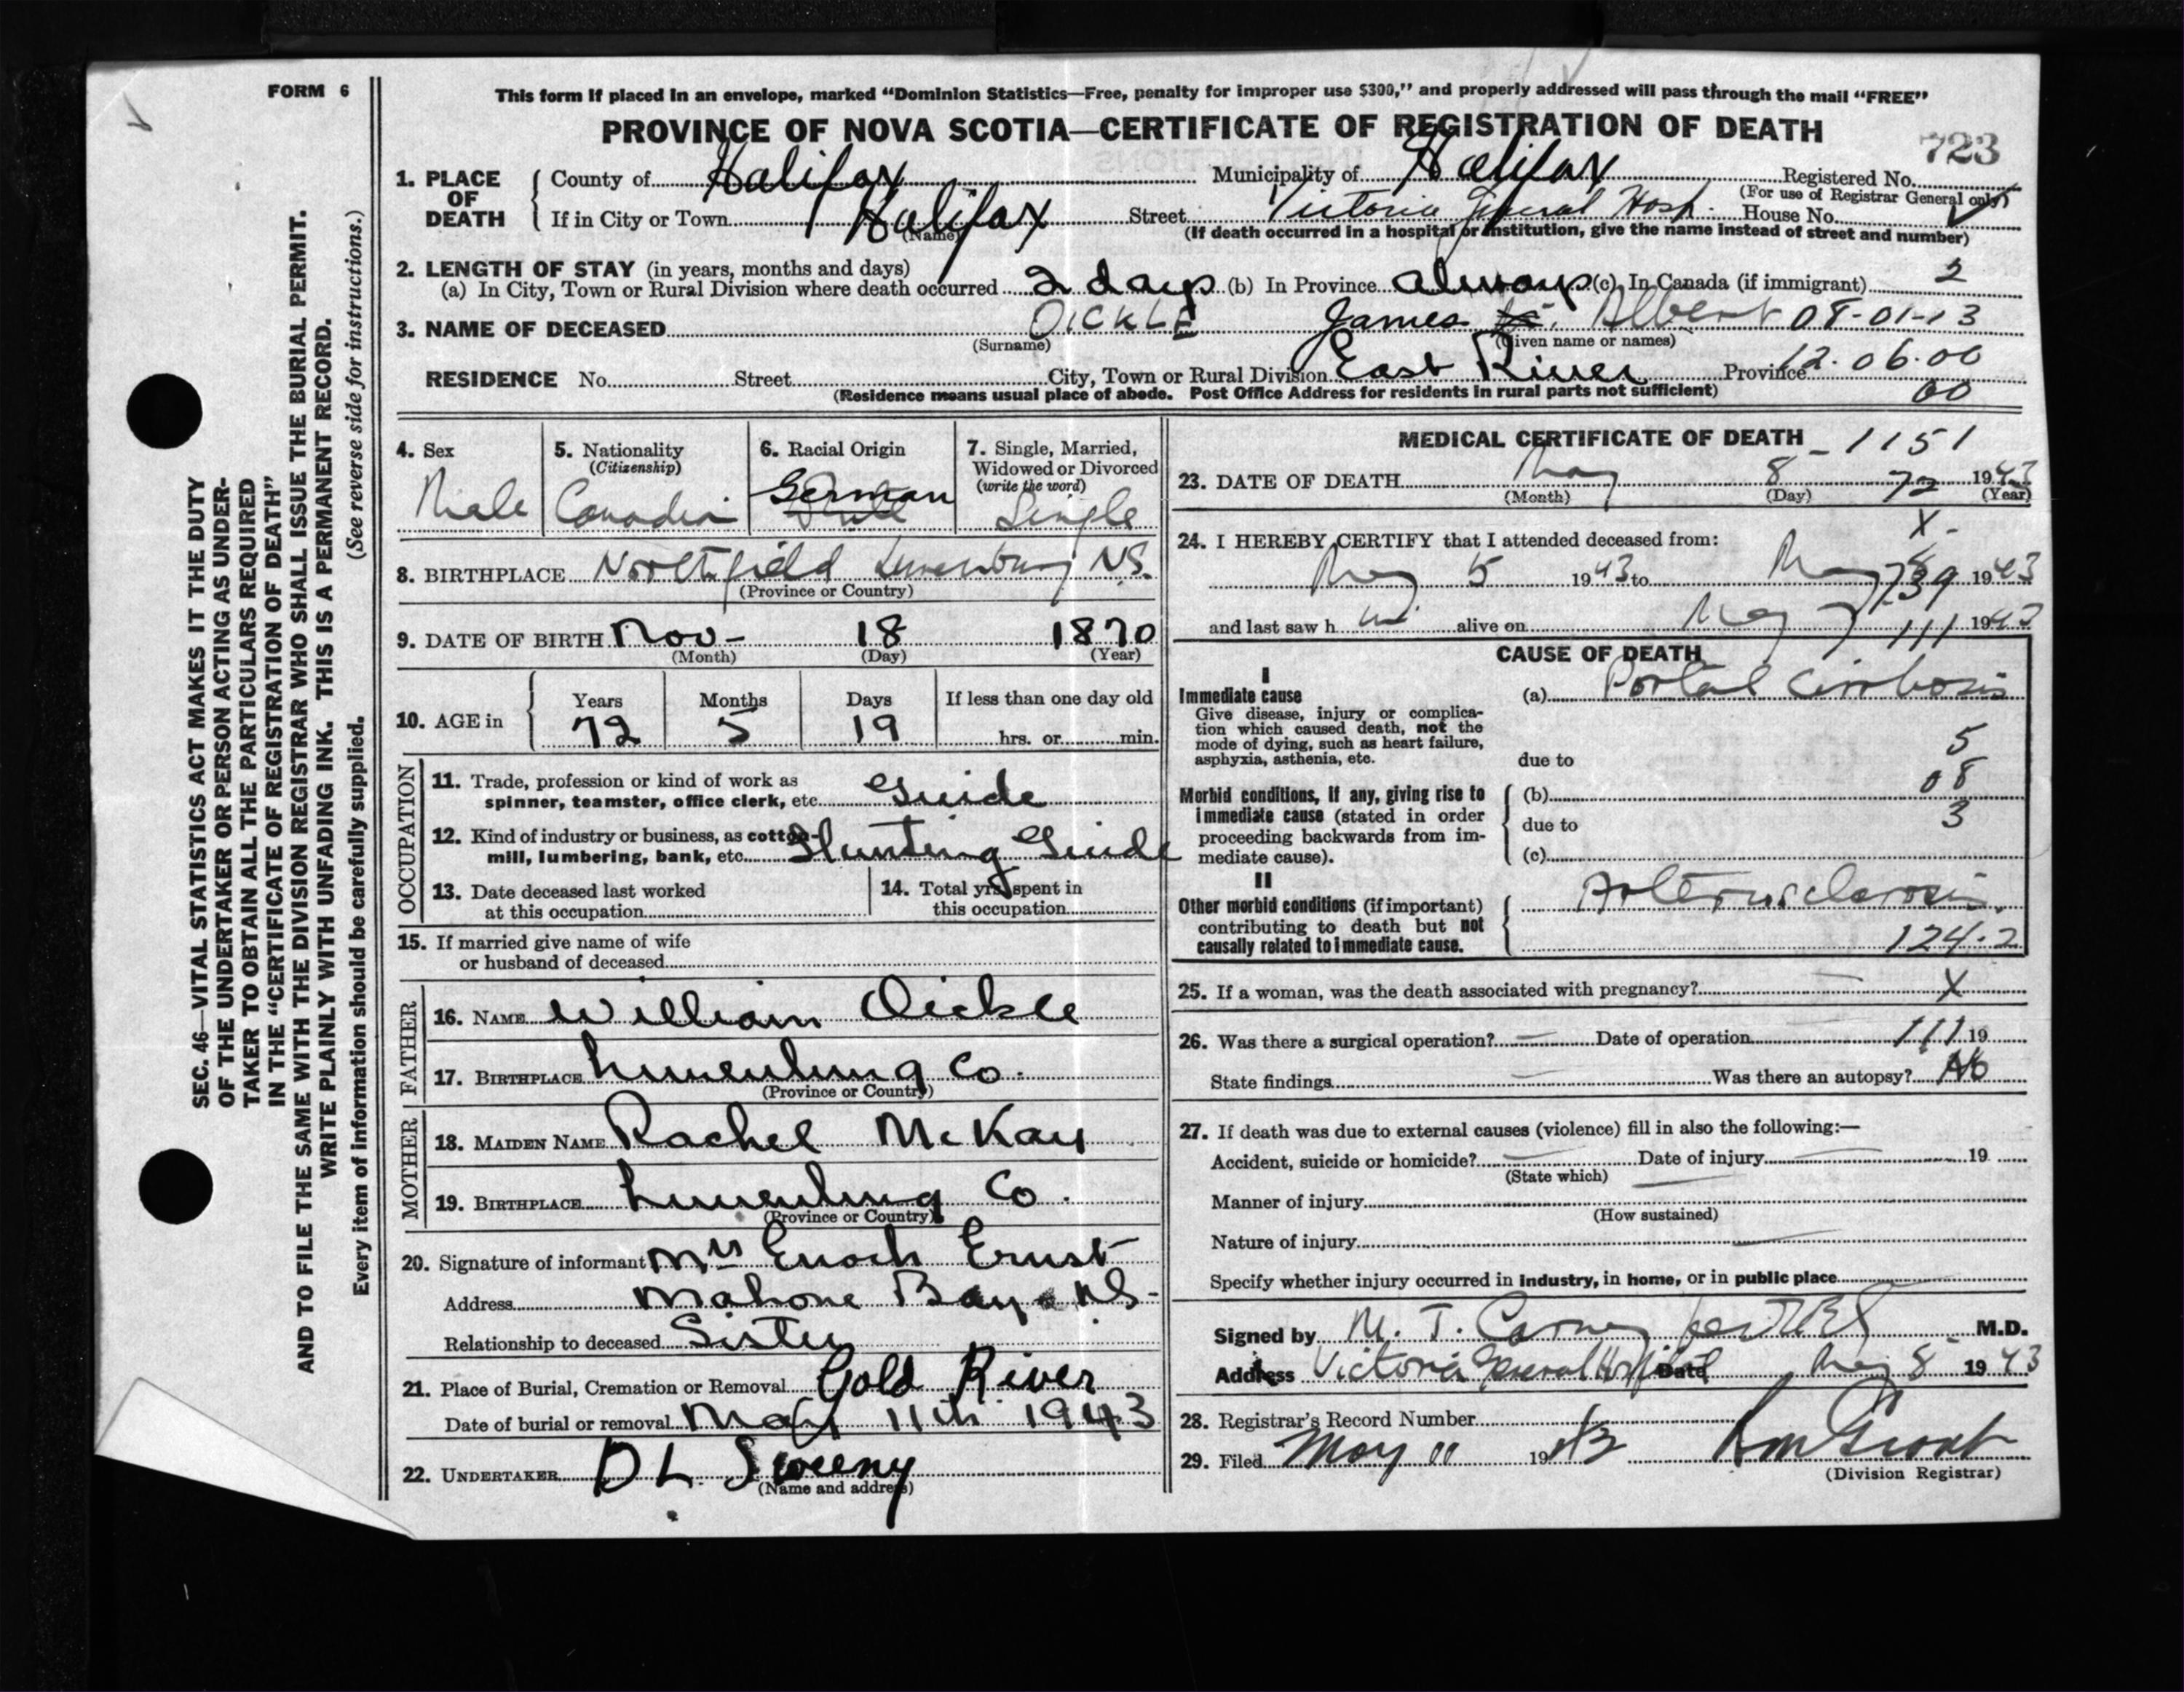 FORM 6
This form if placed in an envelope, marked “Dominion Statistics—Free, penalty for improper use $300,” and properly addressed will pass through the mail “FREE”
PROVINCE OF NOVA SCOTIA—CERTIFICATE OF REGISTRATION OF DEATH
723
1. PLACE OF DEATH
County of Halifax Municipality of Halifax Registered No.
(For use of Registrar General only)
If in City or Town Halifax Street Victoria General Hosp. House No.
(Name) (If death occurred in a hospital or institution, give the name instead of street and number)
2. LENGTH OF STAY (in years, months and days)
(a) In City, Town or Rural Division where death occurred 2 days (b) In Province always (c) In Canada (if immigrant) 2
3. NAME OF DECEASED OICKLE James Albert 08-01-13
(Surname) (Given name or names)
RESIDENCE No. Street City, Town or Rural Division East River Province 12.06.00
(Residence means usual place of abode. Post Office Address for residents in rural parts not sufficient) 00
4. Sex
Male
5. Nationality
(Citizenship)
Canadian
6. Racial Origin
German
White
7. Single, Married,
Widowed or Divorced
(write the word)
Single
8. BIRTHPLACE Northfield Lunenburg N.S.
(Province or Country)
9. DATE OF BIRTH Nov- 18 1870
(Month) (Day) (Year)
10. AGE in
Years Months Days If less than one day old
72 5 19 hrs. or min.
OCCUPATION
11. Trade, profession or kind of work as
spinner, teamster, office clerk, etc. Guide
12. Kind of industry or business, as cotton-
mill, lumbering, bank, etc. Hunting Guide
13. Date deceased last worked
at this occupation
14. Total yrs. spent in
this occupation
15. If married give name of wife
or husband of deceased
FATHER
16. NAME William Oickle
17. BIRTHPLACE Lunenburg Co.
(Province or Country)
MOTHER
18. MAIDEN NAME Rachel McKay
19. BIRTHPLACE Lunenburg Co.
(Province or Country)
20. Signature of informant Mrs Enoch Ernst
Address Mahone Bay N.S-
Relationship to deceased Sister
21. Place of Burial, Cremation or Removal Gold River
Date of burial or removal May 11th 1943
22. UNDERTAKER D L. Sweeny
(Name and address)
MEDICAL CERTIFICATE OF DEATH - 1151
23. DATE OF DEATH May 8 72 1943
(Month) (Day) (Year)
X
24. I HEREBY CERTIFY that I attended deceased from:
May 5 1943 to May 8 739 1943
and last saw h im alive on May 7 111 1943
CAUSE OF DEATH
I
Immediate cause
(a) Portal cirrhosis
Give disease, injury or complica-
tion which caused death, not the
mode of dying, such as heart failure,
asphyxia, asthenia, etc.
due to 5
08
Morbid conditions, if any, giving rise to
immediate cause (stated in order
proceeding backwards from im-
mediate cause).
(b)
due to 3
(c)
II
Other morbid conditions (if important)
contributing to death but not
causally related to immediate cause.
Arteriosclerosis.
124.2
25. If a woman, was the death associated with pregnancy? — X
26. Was there a surgical operation? — Date of operation 111 19
State findings — Was there an autopsy? No
27. If death was due to external causes (violence) fill in also the following:—
Accident, suicide or homicide? — Date of injury — 19
(State which)
Manner of injury
(How sustained)
Nature of injury —
Specify whether injury occurred in industry, in home, or in public place
Signed by M. T. Carney M.D.
Address Victoria General Hospital Date May 8 1943
28. Registrar's Record Number
29. Filed May 11 1943
(Division Registrar)
SEC. 46—VITAL STATISTICS ACT MAKES IT THE DUTY
OF THE UNDERTAKER OR PERSON ACTING AS UNDER-
TAKER TO OBTAIN ALL THE PARTICULARS REQUIRED
IN THE “CERTIFICATE OF REGISTRATION OF DEATH”
AND TO FILE THE SAME WITH THE DIVISION REGISTRAR WHO SHALL ISSUE THE BURIAL PERMIT.
WRITE PLAINLY WITH UNFADING INK. THIS IS A PERMANENT RECORD.
Every item of information should be carefully supplied. (See reverse side for instructions.)